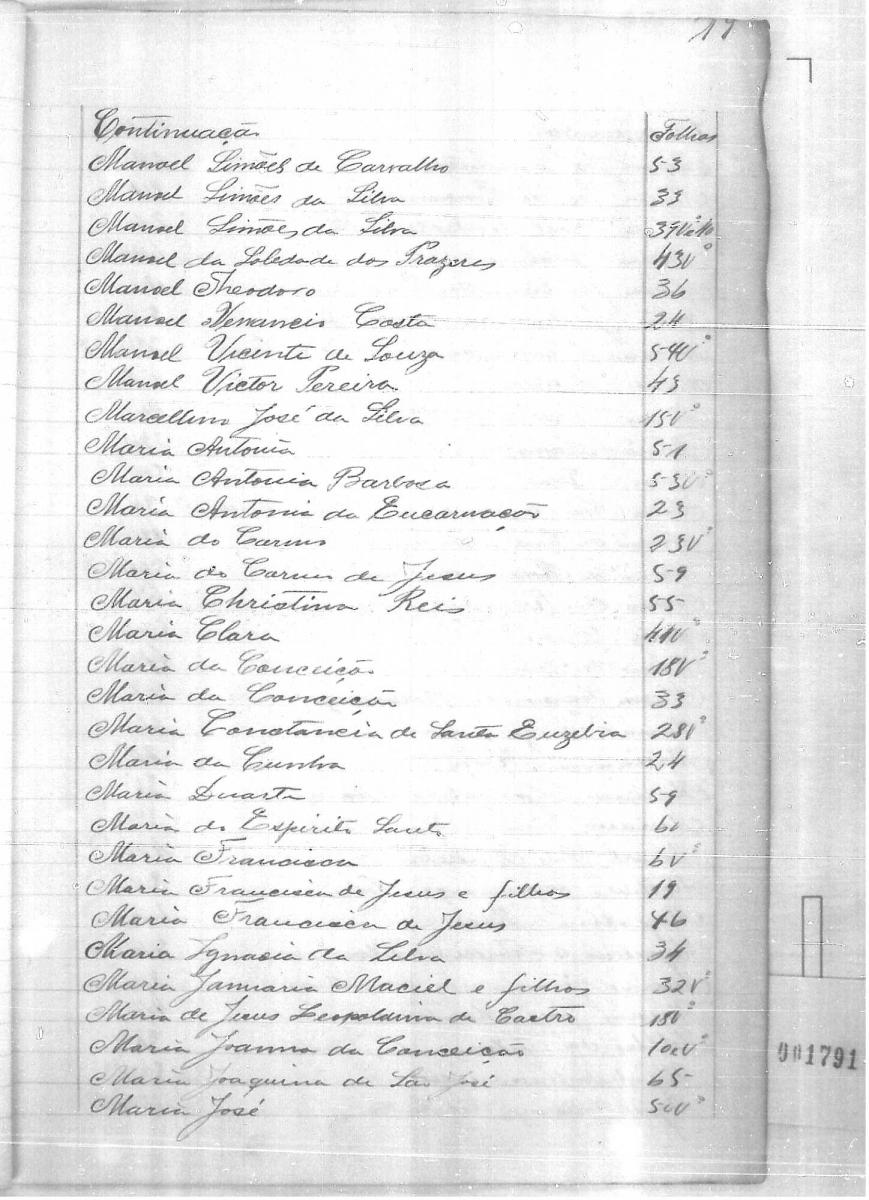 17
Continuação Folhas
Manoel Simões de Carvalho 53
Manoel Simões da Silva 33
Manoel Simões da Silva 39Vº
Manoel da Soledade dos Prazeres 43Vº
Manoel Theodoro 36
Manoel Venancio Costa 24
Manoel Vicente de Souza 54Vº
Manoel Victor Pereira 43
Marcellino José da Silva 15Vº
Maria Antonia 51
Maria Antonia Barbosa 53Vº
Maria Antonia da Encarnação 23
Maria do Carmo 23Vº
Maria do Carmo de Jesus 59
Maria Christina Reis 55
Maria Clara 41Vº
Maria da Conceição 18Vº
Maria da Conceição 33
Maria Constancia de Santa Euzebia 28Vº
Maria da Cunha 24
Maria Duarte 59
Maria do Espirito Santo
Maria Francisca 6Vº
Maria Francisca de Jesus e filhos 19
Maria Francisca de Jesus 46
Maria Ignacia da Silva 34
Maria Januaria Maciel e filhos 32Vº
Maria de Jesus Leopoldina de Castro 18Vº
Maria Joanna da Conceição
Maria Joaquina de São José 65
Maria José
001791